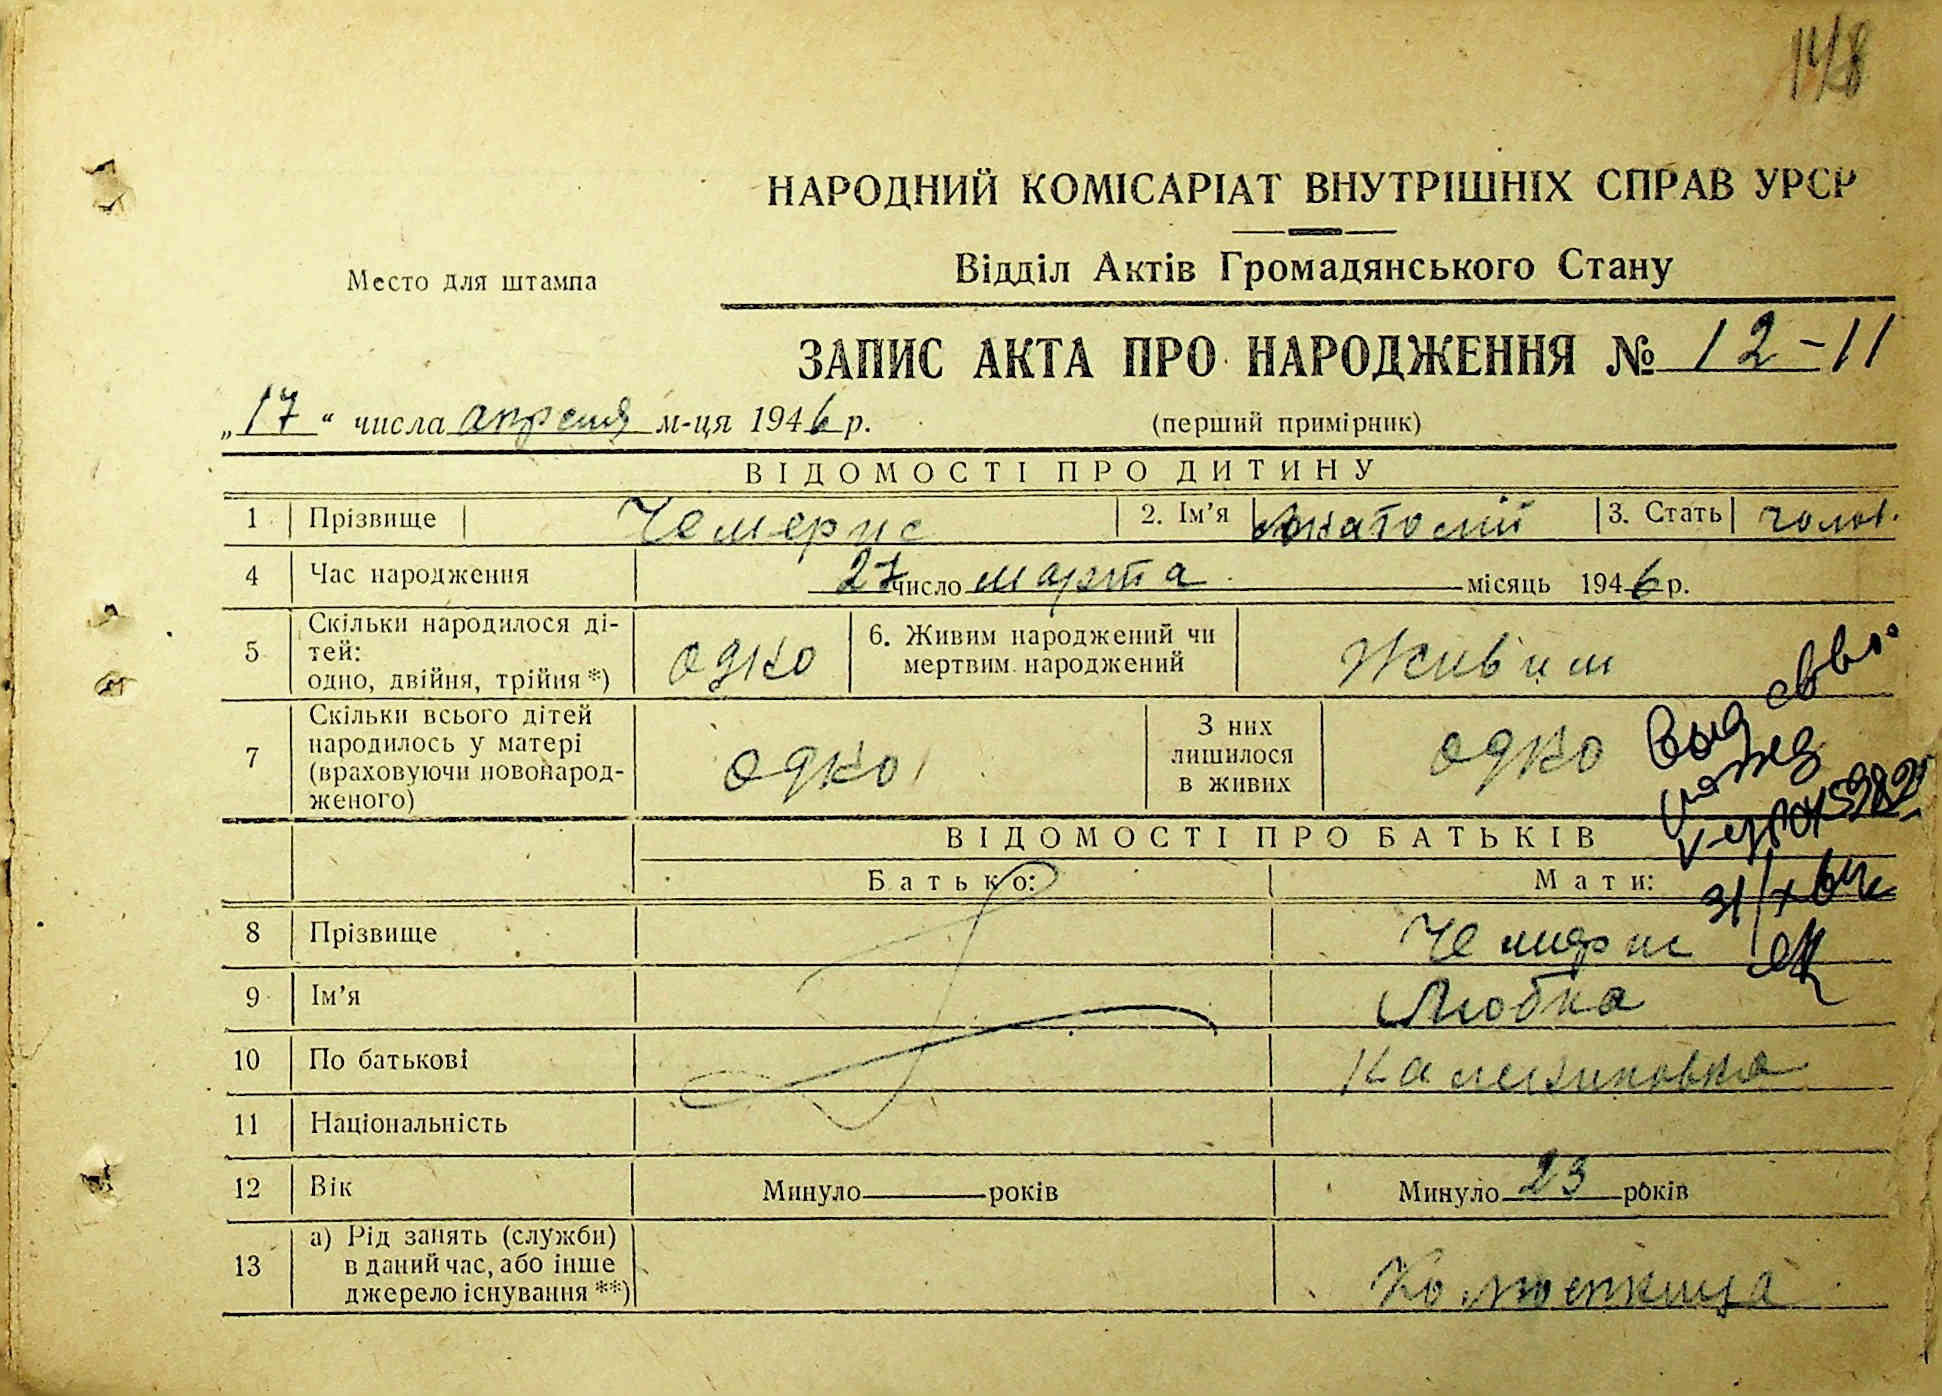 148
НАРОДНИЙ КОМІСАРІАТ ВНУТРІШНІХ СПРАВ УРСР
Место для штампа
Відділ Актів Громадянського Стану
ЗАПИС АКТА ПРО НАРОДЖЕННЯ № 12-11
„17“ числа апреля м-ця 1946 р. (перший примірник)
ВІДОМОСТІ ПРО ДИТИНУ
1 Прізвище Чемерис 2. Ім'я Анатолій 3. Стать чолов.
4 Час народження 27 число марта місяць 1946 р.
5 Скільки народилося ді-
тей:
одно, двійня, трійня *) одно 6. Живим народжений чи
мертвим народжений Живим
7 Скільки всього дітей
народилось у матері
(враховуючи новонарод-
женого) одно З них
лишилося
в живих одно
ВІДОМОСТІ ПРО БАТЬКІВ
Батько: Мати:
8 Прізвище Чемерис
9 Ім'я Любка
10 По батькові
11 Національність
12 Вік Минуло років Минуло 23 років
13 а) Рід занять (служби)
в даний час, або інше
джерело існування **) Колгоспниця